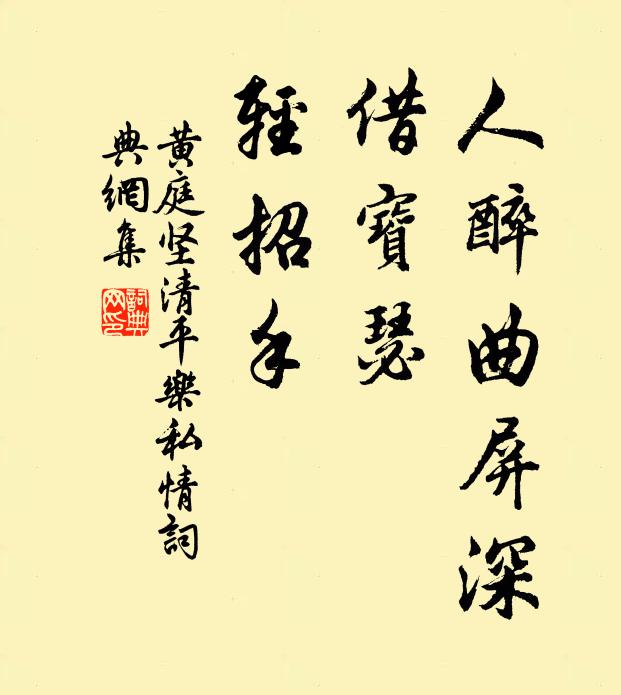 人醉曲屏深
借寶瑟
輕招手
黄庭坚清平樂私情詞
典網集
詞典
网印